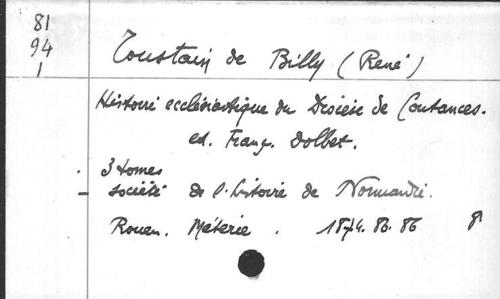 81
94
1
Toustain de Billy (René)
Histoire ecclésiastique du Diocèse de Coutances.
ed. Franç. Dolbet.
3 tomes
société de l'histoire de Normandie.
Rouen. Méterie . 1874. 80. 86 8°